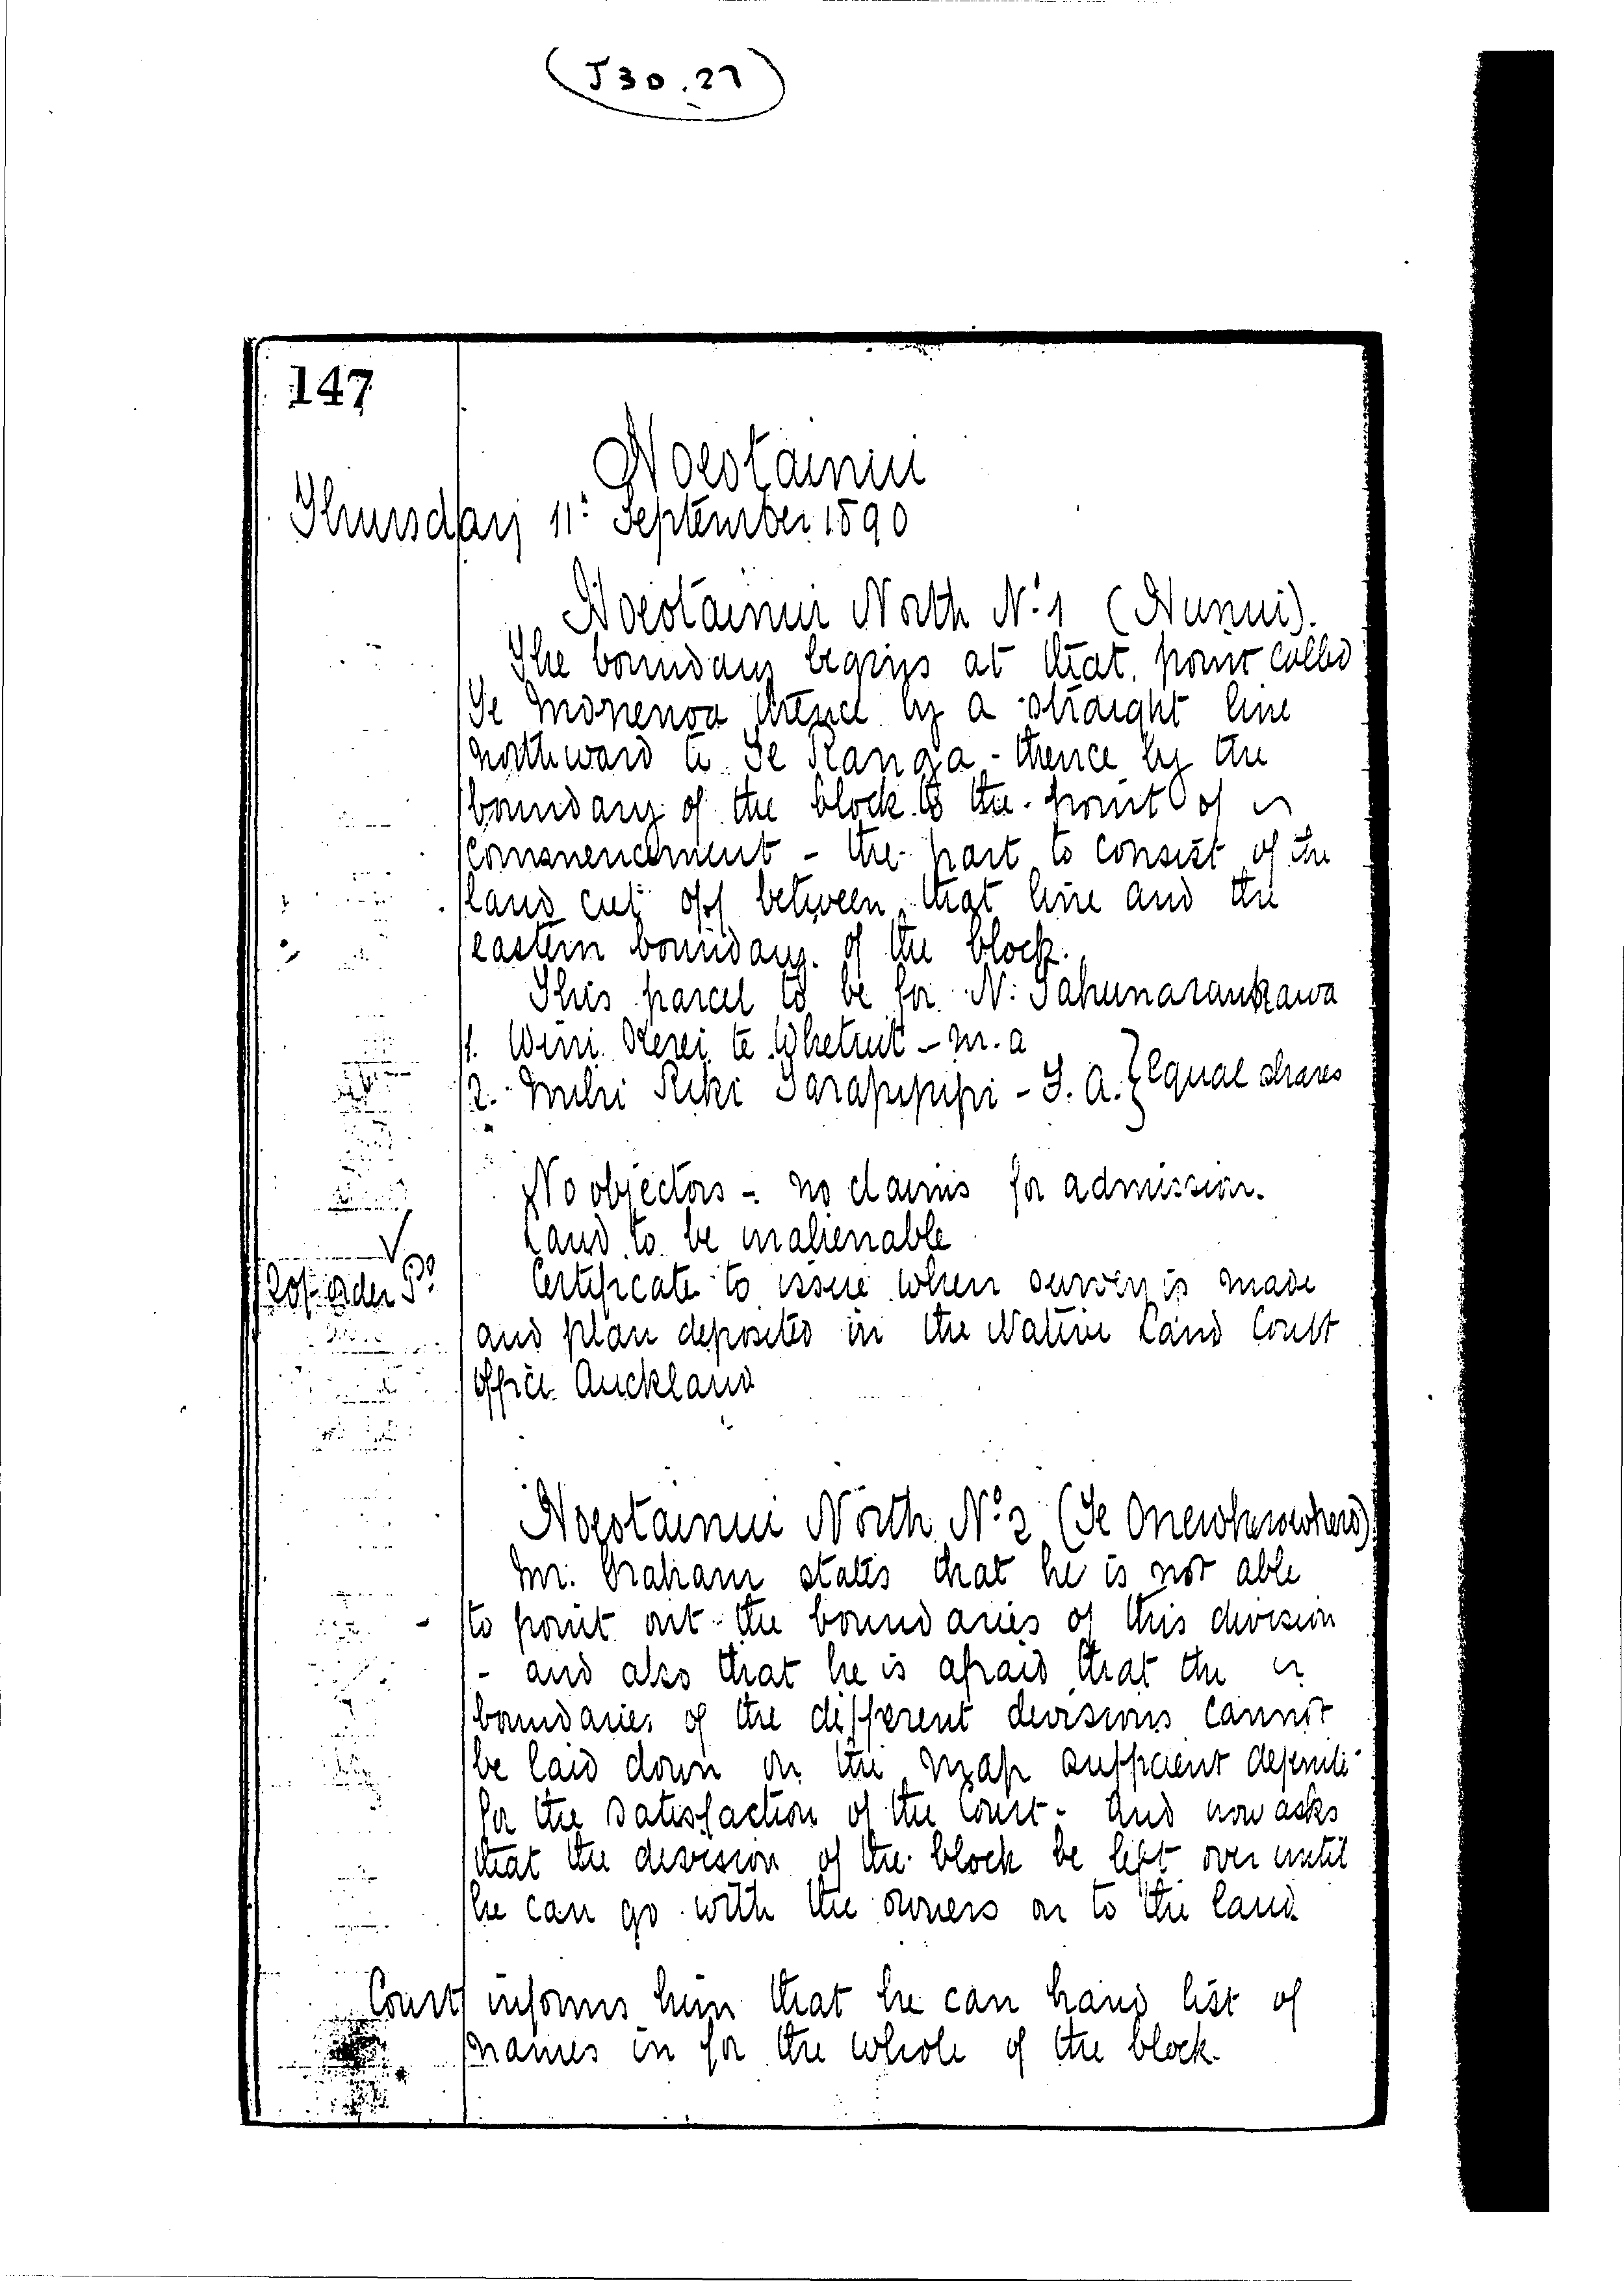 (J30.27)
147
Hoeotainui
Thursday 11: September 1890
Hoeotainui North No 1 (Hunui).
The boundary begins at that point called
Te thence by a straight line
northward to Te Ranga - thence by the
boundary of the block to the point of
commencement - the part to consist of the
land cut off between that line and the
eastern boundary of the block.
This parcel to be for N: Tahunaraukawa
1. Wini Kerei te Whetuiti - M. a
2. Mihi Riki Tarapipipi - F. A. } equal shares
No objectors - no claims for admission.
Land to be inalienable
20/- order Pd
Certificate to issue when survey is made
and plan deposited in the Native Land Court
Office Auckland
Hoeotainui North No 2 (Te Onewherowhero)
Mr. Graham states that he is not able
to point out the boundaries of this division
- and also that he is afraid that the
boundaries of the different divisions cannot
be laid down on the map sufficient definite
for the satisfaction of the Court - and now asks
that the division of the block be left over until
he can go with the owners on to the land
Court informs him that he can hand list of
names in for the whole of the block.